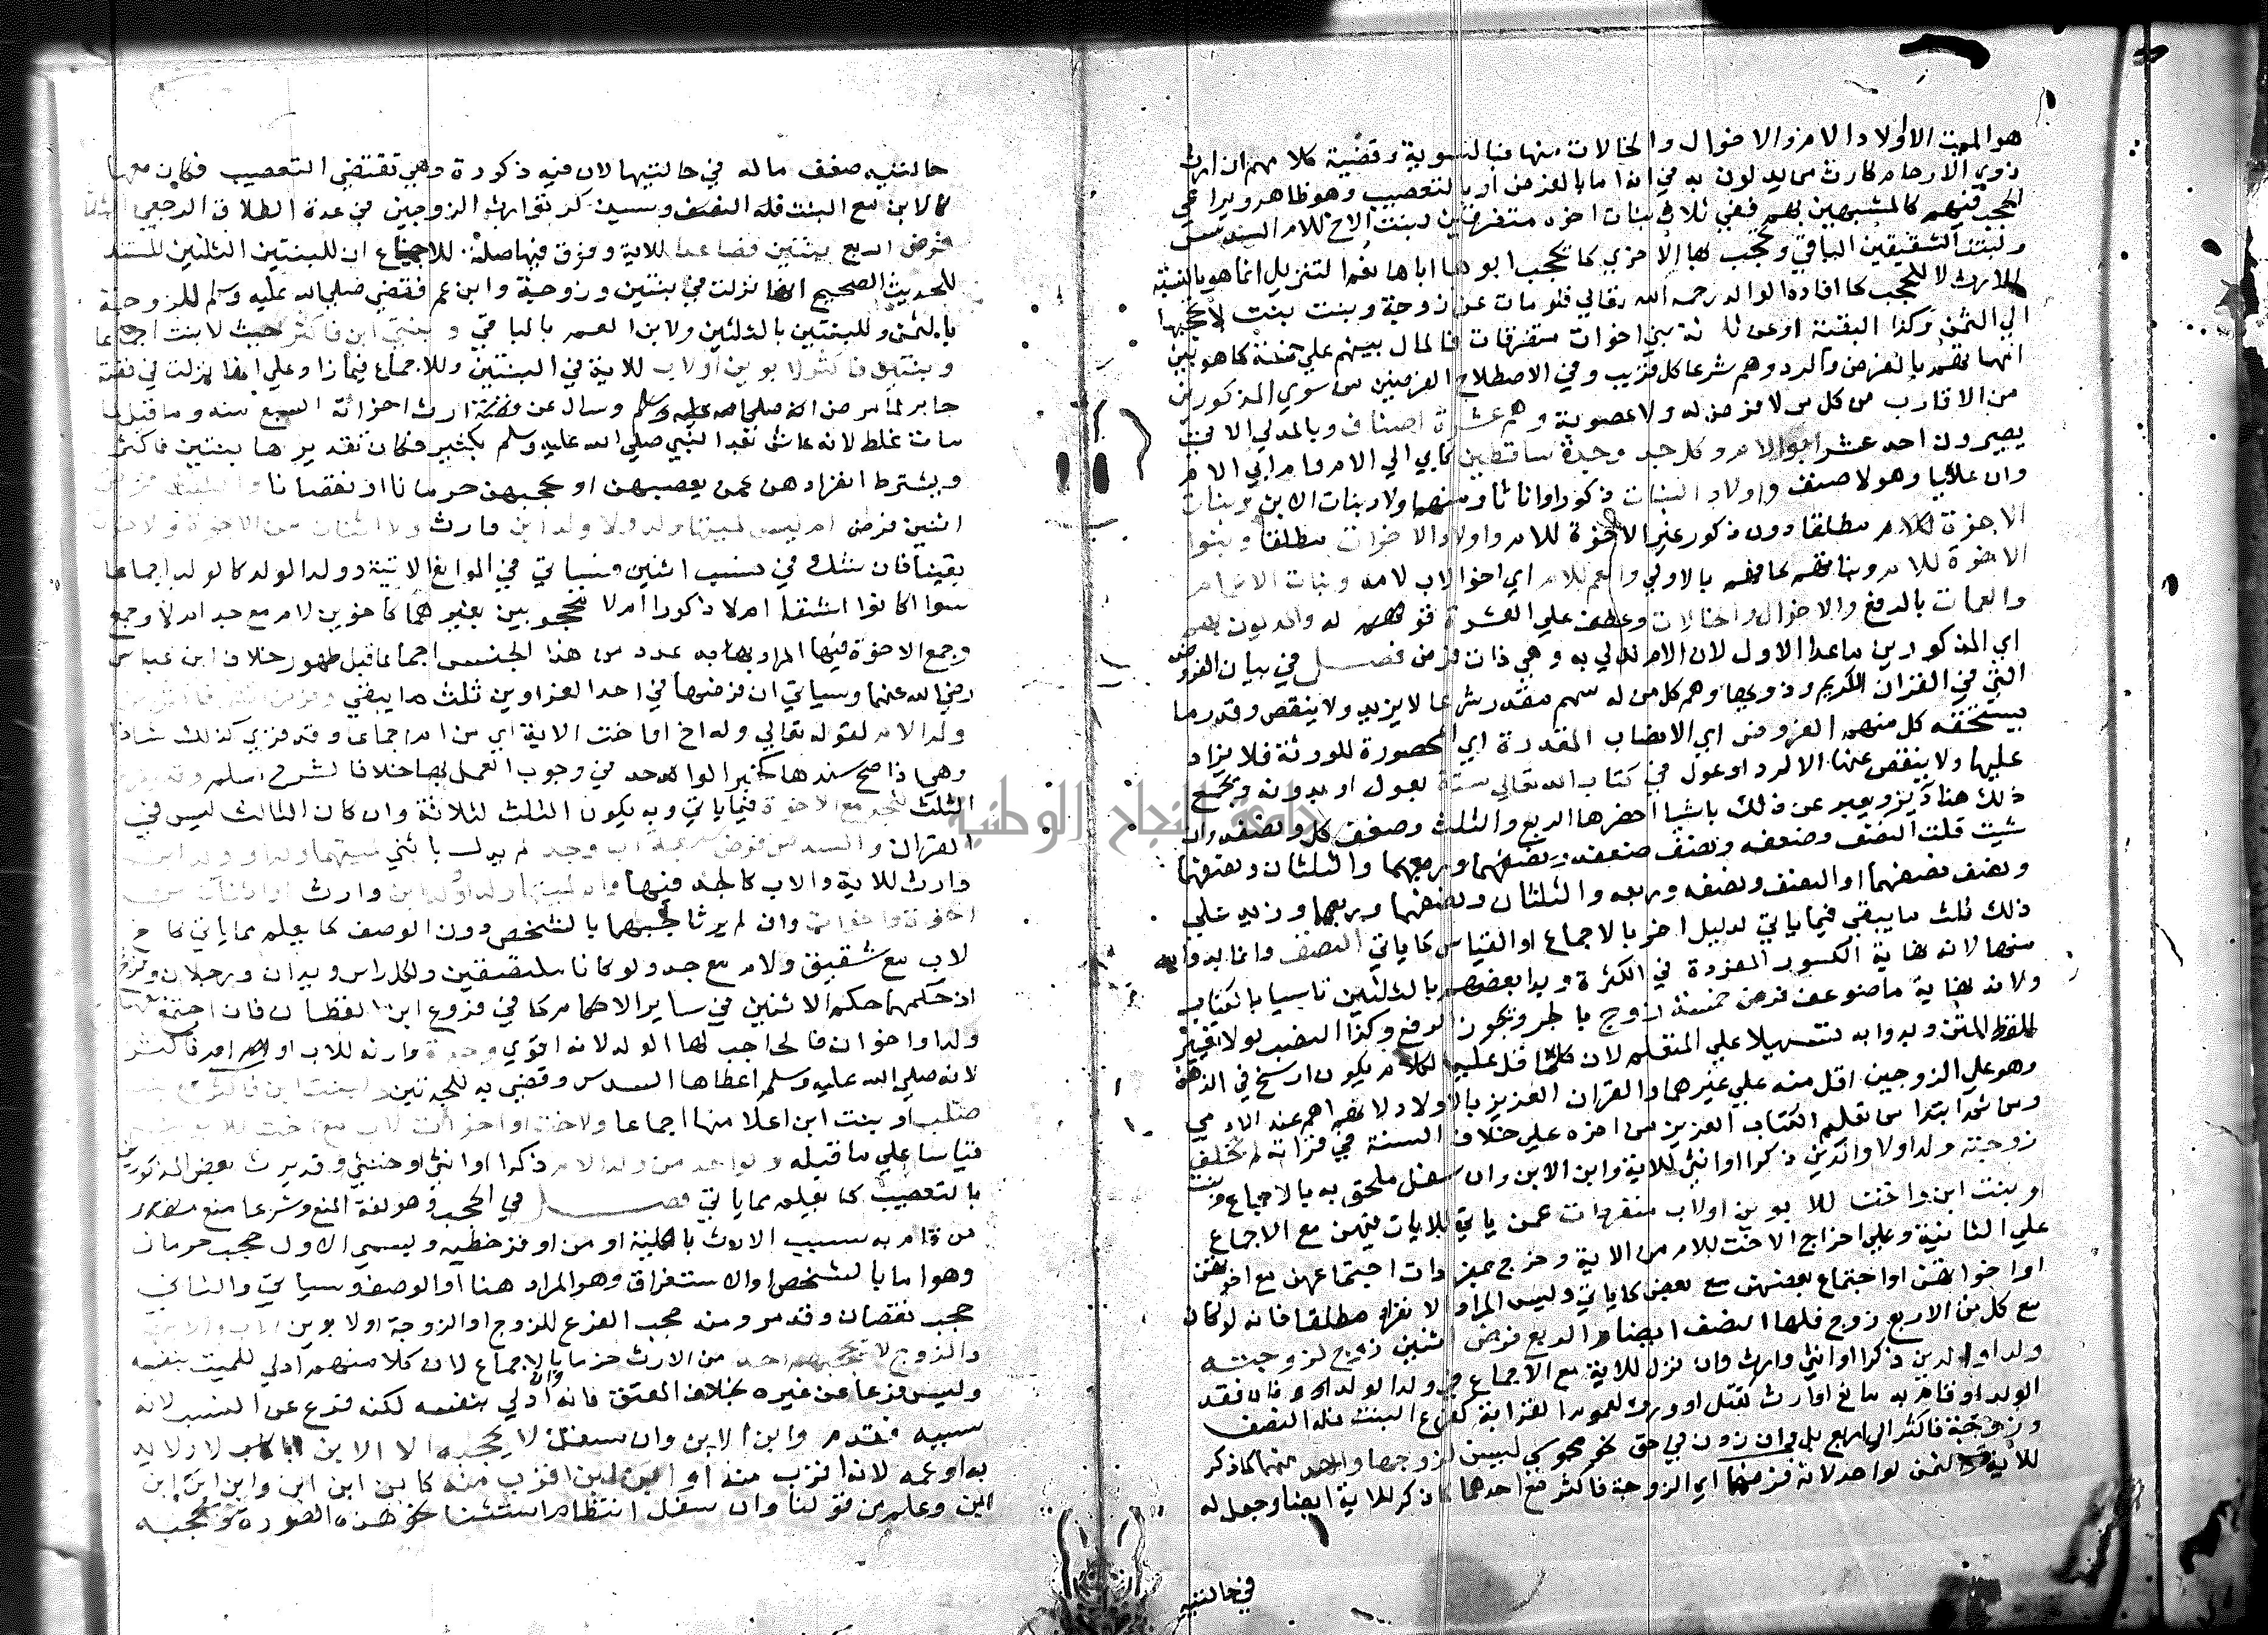 هو الميت الا اولاد الام والاخوال والخالات منها فبالسوية وقضية كلامهم ان ارث
ذوي الارحام كارث من يدلون به في انه اما بالفرض او بالتعصيب وهو ظاهر ويراعى
الحجب فيهم كالمشبهين بهم ففي ثلاث بنات اخوة متفرقين لبنت الاخ للام السدس
ولبنت الشقيق الباقي وتحجب بها الاخرى كما يحجب ابوها اباها نعم التنزيل انما هو بالنسبة
للارث لا للحجب كما افاده الوالد رحمه الله تعالى فلو مات عن زوجة وبنت بنت لا تحجبها
الى الثمن وكذا البقية او عن ثلاثة بني اخوات متفرقات فالمال بينهم على خمسة كما هو بين
امهاتهم بالفرض والرد وهم شرعا كل قريب وفي الاصطلاح الفرضيين من سوى المذكورين
من الاقارب من كل من لا فرض له ولا عصوبة وهم عشرة اصناف وبالمدلى الاتي
يصيرون احد عشر ابو الام وكل جد وجدة ساقطين كابي ابي الام وام ابي الام
وان عليا وهولا صنف واولاد البنات ذكورا واناثا ومنهم اولاد بنات الابن وبنات
الاخوة للام مطلقا دون ذكور غير الاخوة للام واولاد الاخوات مطلقا وبنوا
الاخوة للام وبناتهم كما فهم بالاولى والعم للام اي اخوا الاب لامه وبنات الاعمام
والعمات بالرفع والاخوال والخالات وعطف على العشرة قوله والمدلون بهم
اي المذكورين ما عدا الاول لان الام تدلي به وهي ذات فرض فصل في بيان الفروض
التي في القران الكريم وذويها وهم كل من له سهم مقدر شرعا لا يزيد ولا ينقص وقدر ما
يستحقه كل منهم الفروض اي الانصباء المقدرة اي المحصورة للورثة فلا يزاد
عليها ولا ينقص عنها الا لرد او عول في كتاب الله تعالى ستة بعول او بدونه ويجمع
ذلك هنا ويعبر عن ذلك باشيا اخصرها الربع والثلث وضعف كل ونصفه وان
شيت قلت النصف وضعفه ونصف ضعفه ونصفهما وربعهما والثلثان ونصفهما
ونصف نصفهما او النصف ونصفه وربعه والثلثان ونصفهما وربعهما وزيد على
ذلك ثلث ما يبقى فيما ياتي لدليل اخر بالاجماع او القياس كما ياتي النصف وانما بدوا به
منها لانه نهاية الكسور المفردة في الكثرة وبدا بعضهم بالثلثين تاسيا بالكتاب
ولانه نهاية ما ضوعف فرض خمسة زوج بالجر ويجوز الرفع وكذا النصب لولا تغيير
للفظ المتن وبدوا به تسهيلا على المتعلم لان كلما قل عليه الكلام يكون ارسخ في الذهن
وهو على الزوجين اقل منه على غيرهما والقران العزيز بالاولاد لانهم اهم عند الادمي
ومن ثم ابتدا من تعلم الكتاب العزيز من اخره على خلاف السنة في قراته لم تخلف
زوجته ولدا ولا ولد ابن ذكرا او انثى للاية وابن الابن وان سفل ملحق به بالاجماع وبنت
او بنت ابن واخت للابوين او لاب منفردات عمن ياتي للايات فيهن مع الاجماع
على الثانية وعلى اخراج الاخت للام من الاية وخرج بمنفردات اجتماعهن مع اخوتهن
او اخواتهن او اجتماع بعضهن مع بعض كما ياتي وليس المراد الانفراد مطلقا فانه لو كان
مع كل من الاربع زوج فلها النصف ايضا والربع فرض اثنين زوج لزوجته
ولد او ولد ابن ذكرا او انثى وارث وان نزل للاية مع الاجماع في ولد الولد فان فقد
الولد او قام به مانع ارث كقتل او ورث لعموم القرابة كفرع البنت فله النصف
وزوجة فاكثر الى اربع بل وان زدن في حق نحو مجوسي ليس لزوجها واحد منهما كما ذكر
للاية والثمن لواحد لانه فرضها اي الزوجة فاكثر مع احدهما كما ذكر للاية ايضا وجعل له
في حالتيه
حالتيه ضعف ما لها في حالتيها لان فيه ذكورة وهي تقتضي التعصيب فكان معها
كالابن مع البنت فله النصف وسيذكر توارث الزوجين في عدة الطلاق الرجعي
فرض اربع بنتين فصاعدا للاية وفوق فيها صلة للاجماع ان للبنتين الثلثين المستند
للحديث الصحيح انها نزلت في بنتين وزوجة وابن عم فقضى صلى الله عليه وسلم للزوجة
بالثمن وللبنتين بالثلثين ولابن العم بالباقي وبنتي ابن فاكثر حيث لا بنت اجماعا
وبنتين فاكثر لابوين او لاب للاية في البنتين وللاجماع فيما زاد على انها نزلت في قصة
جابر لما مرض انه صلى الله عليه وسلم وسال عن قضية ارث اخواته السبع منه وما قيل انها
مات غلط لانه عاش بعد النبي صلى الله عليه وسلم بكثير فكان تقديرها بنتين فاكثر
ويشترط انفرادهن عمن يعصبهن او يحجبهن حرمانا او نقصانا والثلث فرض
اثنين فرض ام ليس لميتها ولد ولا ولد ابن وارث ولا اثنان من الاخوة والاخوات
يقينا فان شك في نسب اثنين فسياتي في الموانع الاتية وولد الولد كالولد اجماعا
سوا كانوا اشقا ام لا ذكورا ام لا محجوبين بغيرهما كاخوين لام مع جد ام لا وجمع
وجمع الاخوة فيها المراد بها به عدد من هذا الجنس اجماعا قبل ظهور خلاف ابن عباس
رضي الله عنهما وسياتي ان فرضها في احدى الغراوين ثلث ما يبقى وفرض اثنين فاكثر من
ولد الام لقوله تعالى وله اخ او اخت الاية اي من ام اجماعا وقد قرى كذلك شاذا
وهي اذا صح سندها كخبر الواحد في وجوب العمل بها خلافا لشرح مسلم وقد يفرض
الثلث لجد مع الاخوة فيما ياتي وبه يكون الثلث لثلاثة وان كان الثالث ليس في
القران والسدس فرض سبعة اب وجد لم يدل بانثى لميتهما ولد او ولد ابن
وارث للاية والاب كالجد فيها وام لميتها ولد او ولد ابن وارث او اثنان من
اخوة واخوات وان لم يرثا لحجبهما بالشخص دون الوصف كما يعلم مما ياتي كاخ
لاب مع شقيق ولام مع جد ولو كانا ملتصقين ولكل راس ويدان ورجلان وفرج
اذ حكمهما حكم الاثنين في ساير الاحكام كما في فروع ابن القطان فان اجتمع معها
ولد او اخوان فالحاجب لها الولد لانه اقوى وجدة وارثة للاب او الام فاكثر
لانه صلى الله عليه وسلم اعطاها السدس وقضى به للجدتين ولبنت ابن فاكثر مع بنت
صلب او بنت ابن اعلا منها اجماعا ولاخت او اخوات لاب مع اخت للابوين
قياسا على ما قبله ولواحد من ولد الام ذكرا او انثى او خنثى وقد يرث بعض المذكورين
بالتعصيب كما يعلم مما ياتي فصل في الحجب وهو لغة المنع وشرعا منع
من قام به سبب الارث بالكلية او من اوفر حظيه ويسمى الاول حجب حرمان
وهو اما بالشخص او الاستغراق وهو المراد هنا او الوصف وسياتي والثاني
حجب نقصان وقد مر ومنه حجب الفرع للزوج او الزوجة
والزوج لا يحجبهم احد من الارث حرمانا بالاجماع لان كلا منهم ادلى للميت بنفسه
وليس فرعا عن غيره بخلاف المعتق فانه وان ادلى بنفسه لكنه فرع عن النسب لانه
سببه فقدم وابن الابن وان سفل لا يحجبه الا الابن اباه كان لادلائه
به او عمه لانه اقرب منه او ابن ابن اقرب منه كابن ابن ابن وابن ابن ابن
ابن وعلم من قولنا وان سفل انتظام استثنا نحو هذه الصورة ويحجبه
جامعة النجاح الوطنية